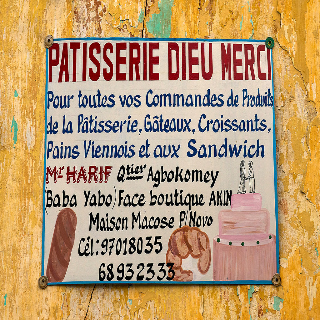 PATISSERIE DIEU MERCI
Pour toutes vos Commandes de Produits
de la Pâtisserie, Gâteaux, Croissants,
Pains Viennois et aux Sandwich
Mr HARIF Qtier Agbokomey
Baba Yabo/Face boutique AKIN
Maison Macose P/Novo
Cél: 97018035
68932333